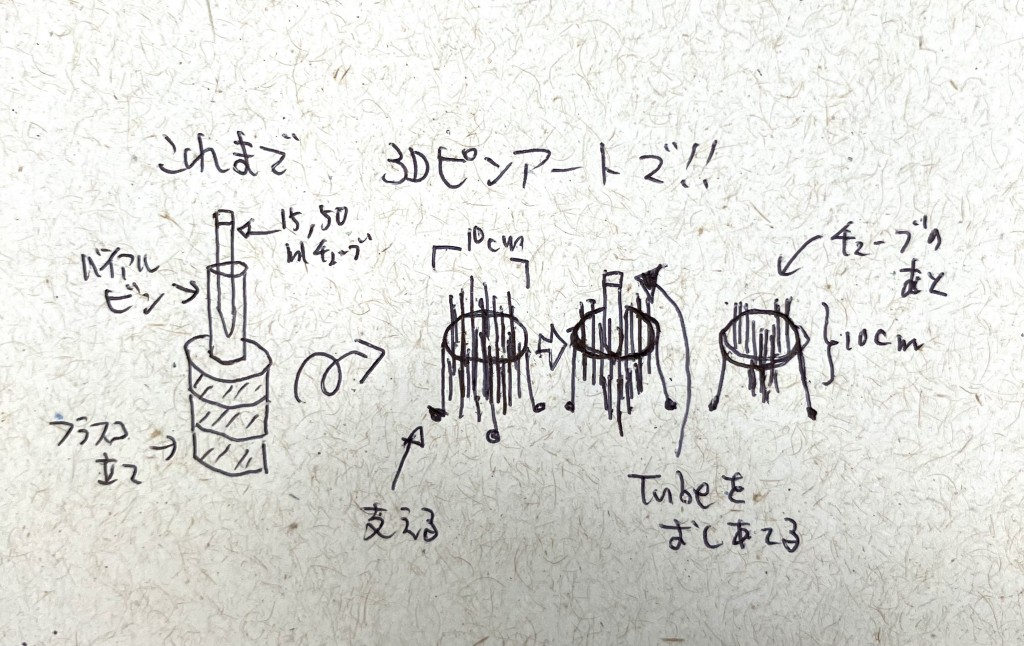 これまで
3Dピンアートで!!
15,50
mlチューブ
バイアル
ビン
フラスコ
立て
10cm
支える
Tubeを
おしあてる
チューブの
あと
10cm